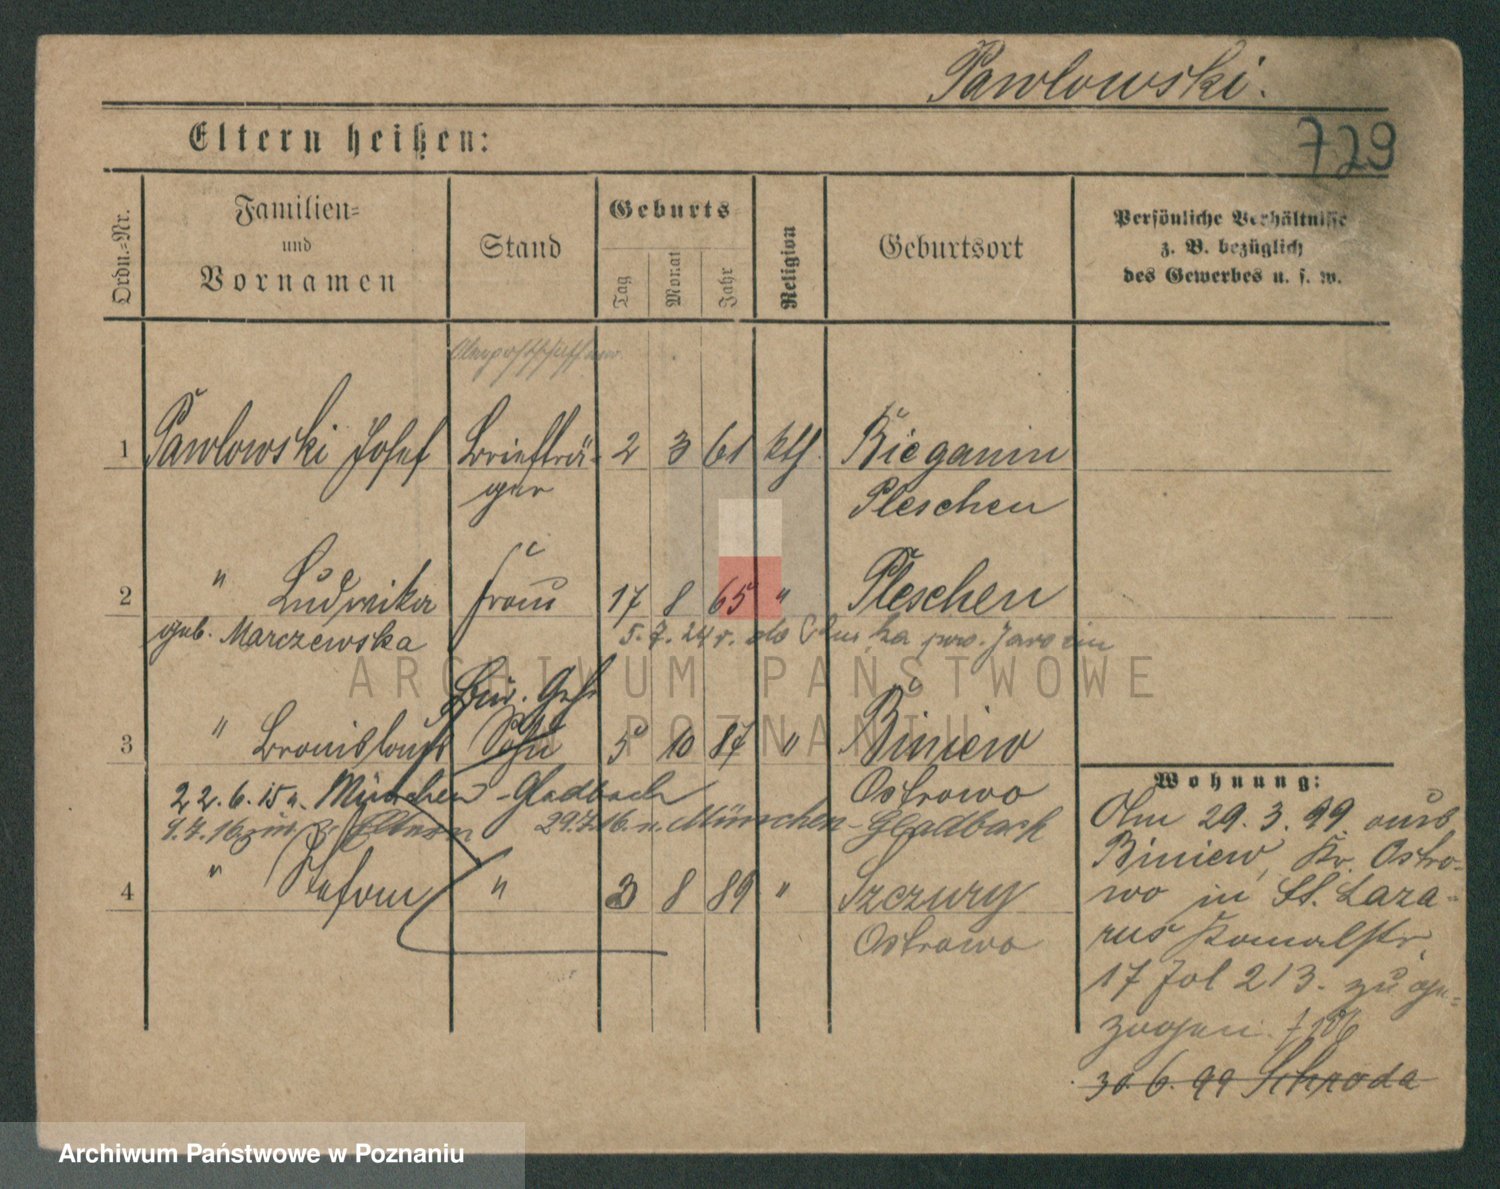 Pawlowski.
729
Eltern heißen:
Ordn.=Nr.
Familien=
und
Vornamen
Stand
Geburts
Tag
Monat
Jahr
Religion
Geburtsort
Persönliche Verhältnisse
z. B. bezüglich
des Gewerbes u. s. w.
1 Pawlowski Josef Briefträ- 2 3 61 kth. Bieganin
ger Pleschen
2 " Ludwika Frau 17 8 65 " Pleschen
geb. Marczewska 5. 7. 24 v. Jarocin
Bür. Geh
3 " Bronislaus Sohn 5 10 87 " Biniew
Ostrowo
22. 6. 15 n. München-Gladbach
1. 7. 16 z. Eltern 29.7.16. n. München-Gladbach
4 " Stefan " 3 8 89 " Szczury
Ostrowo
Wohnung:
Am 29. 3. 99 aus
Biniew, Kr. Ostro-
wo in St. Laza-
rus Kanalstr.
17 Fol 213. zuge-
zogen.
30. 6. 99 Schroda
ARCHIWUM PAŃSTWOWE
W POZNANIU
Archiwum Państwowe w Poznaniu